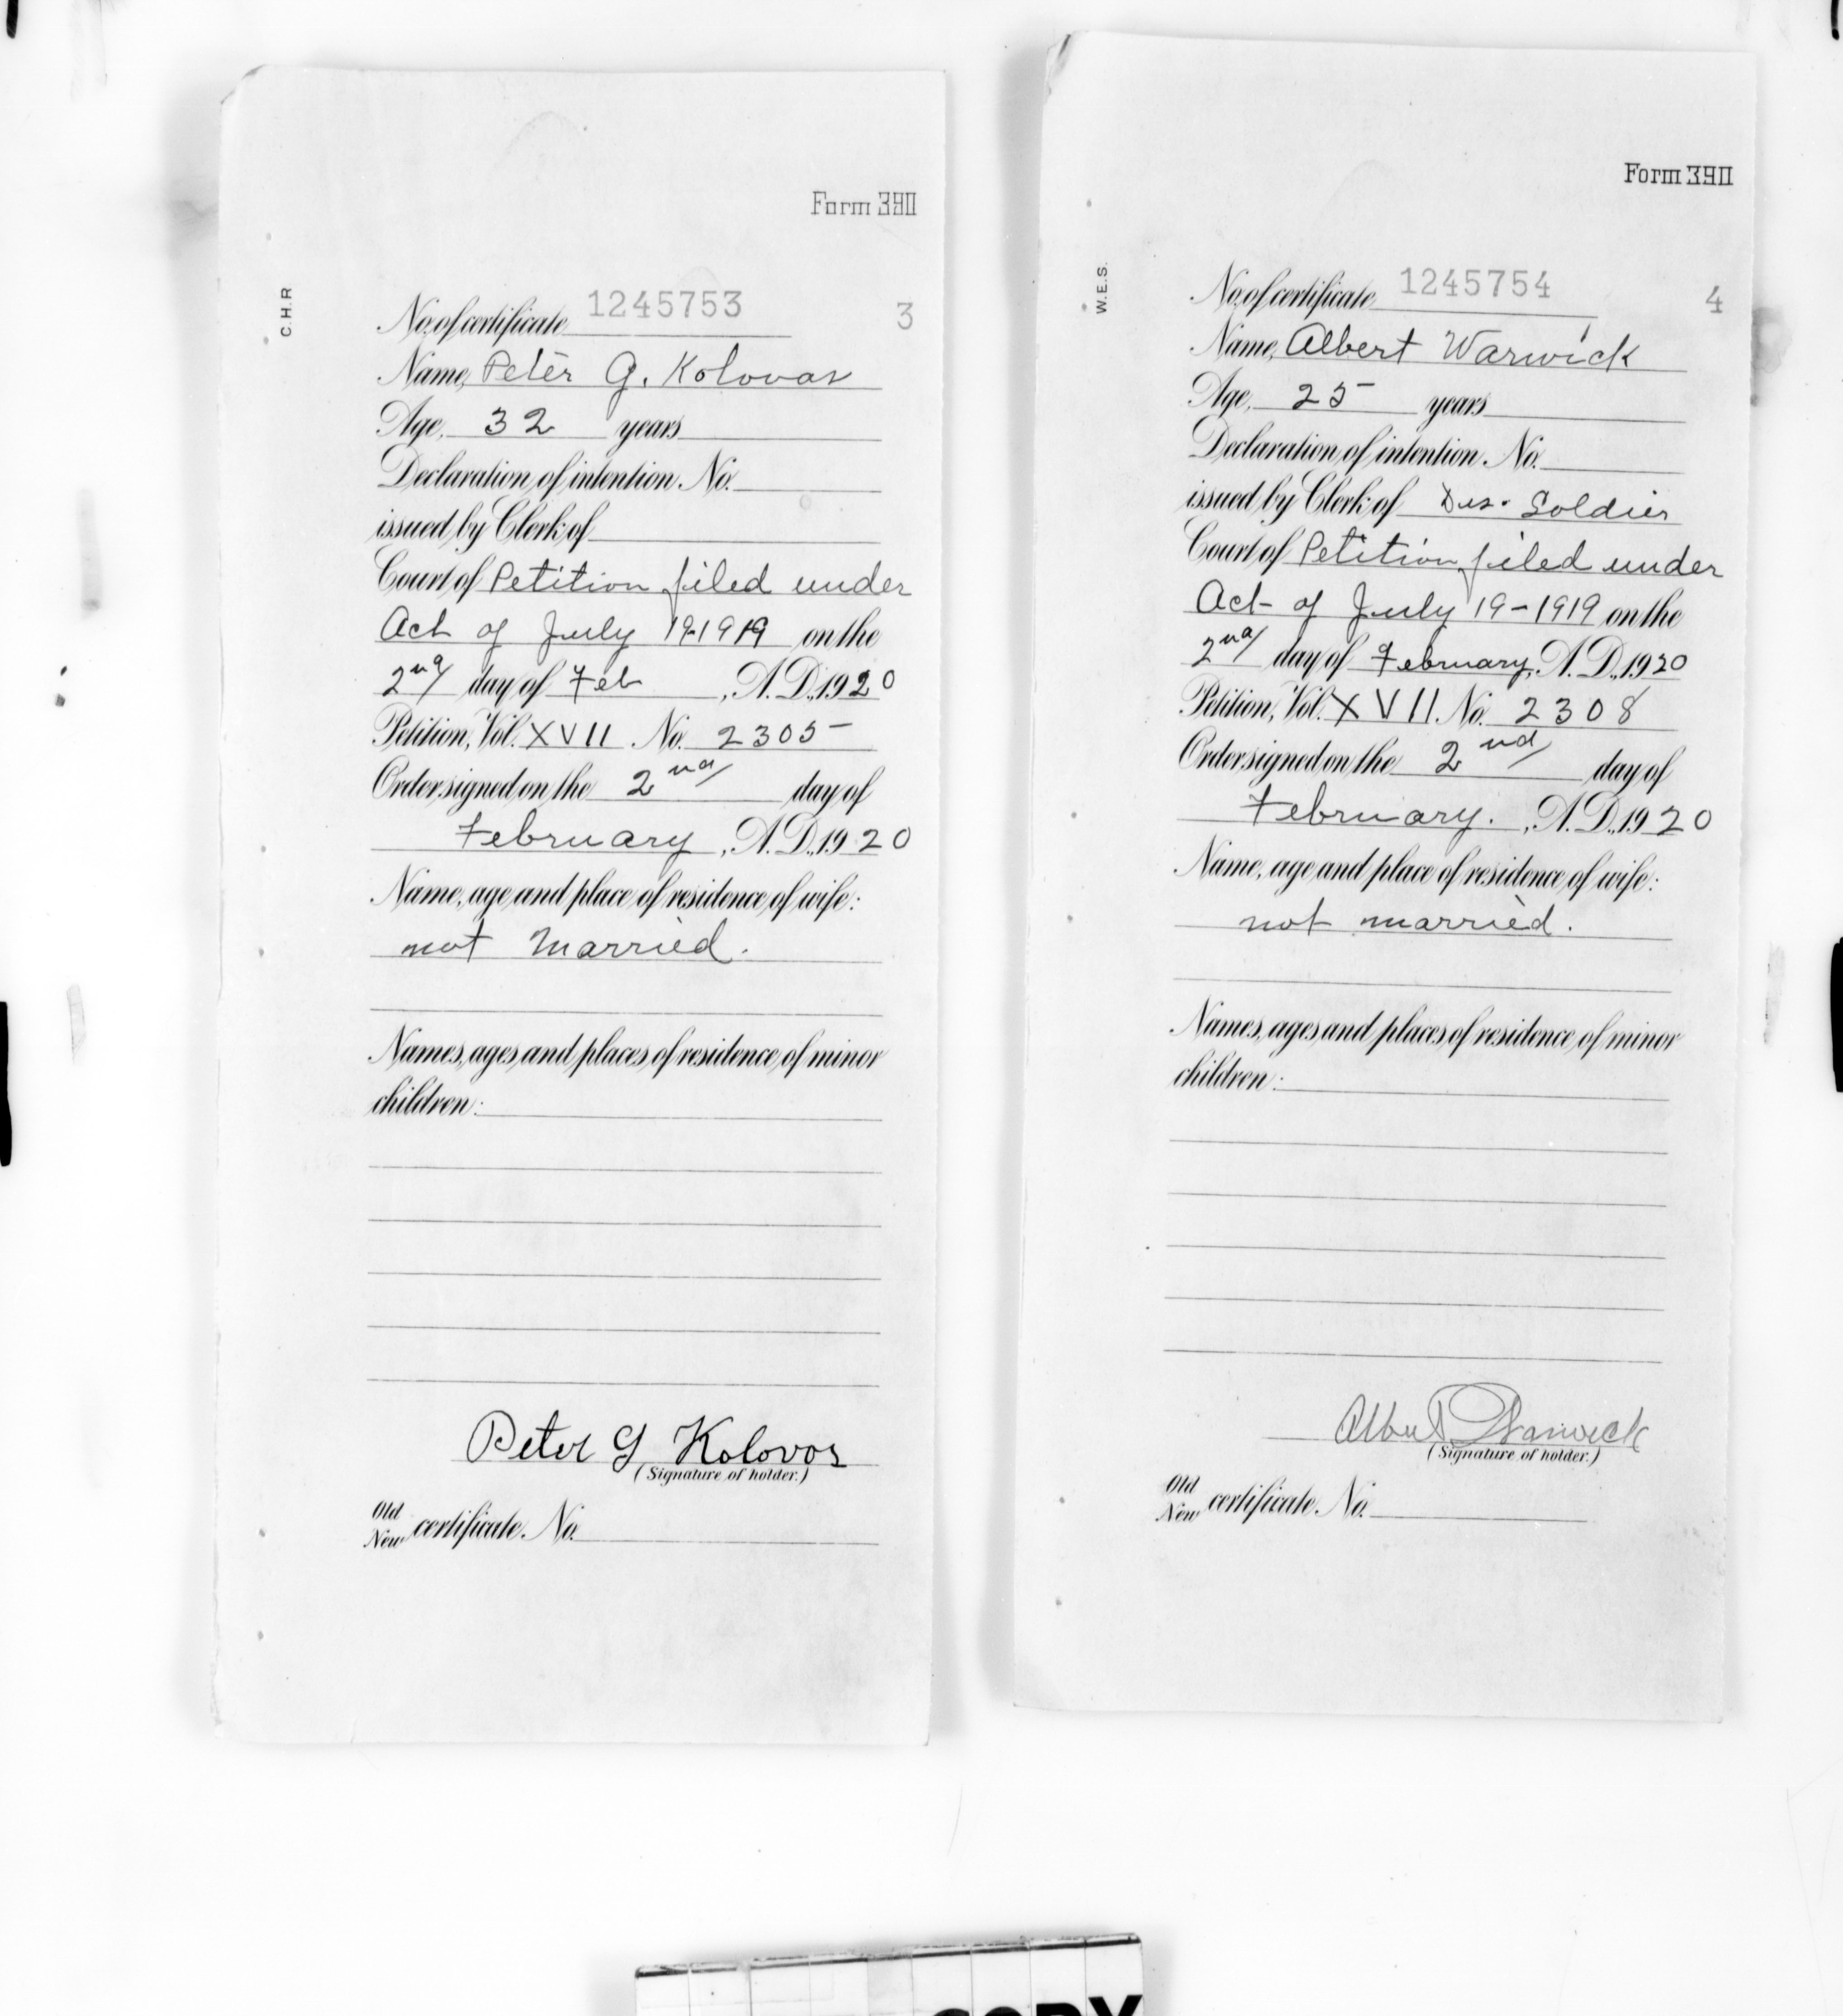 Form 390
C.H.R
No. of certificate 1245753 3
Name, Peter G. Kolovos
Age, 32 years
Declaration of intention No.
issued by Clerk of
Court of Petition filed under
Act of July 19-1919 on the
2nd day of Feb , A.D., 1920
Petition, Vol. XVII No. 2305
Order signed on the 2nd day of
February , A.D., 1920
Name, age and place of residence of wife:
not Married.
Names, ages and places of residence of minor
children:
Peter G Kolovos
(Signature of holder.)
Old
New certificate No.
Form 390
W.E.S.
No. of certificate 1245754 4
Name, Albert Warwick
Age, 25 years
Declaration of intention No.
issued by Clerk of Dis. Soldier
Court of Petition filed under
Act of July 19-1919 on the
2nd day of February, A.D., 1920
Petition, Vol. XVII No. 2308
Order signed on the 2nd day of
February. , A.D., 1920
Name, age and place of residence of wife:
not married.
Names, ages and places of residence of minor
children:
Albert Warwick
(Signature of holder.)
Old
New certificate No.
COPY